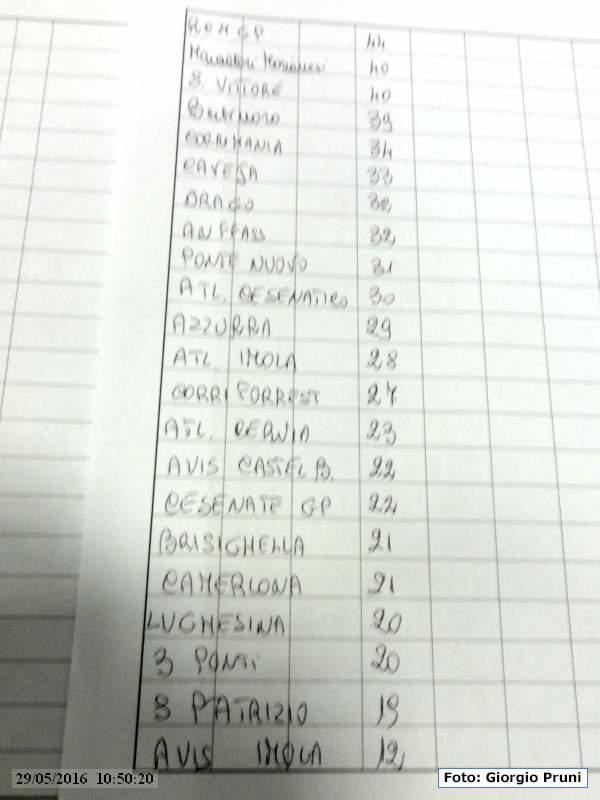 ROM GP 44
40
S. VITTORE 40
Bertinoro 39
CORRMANIA 34
CAVEJA 33
DRAGO 32
ANFFASS 32
PONTE NUOVO 31
ATL. CESENATICO 30
AZZURRA 29
ATL. IMOLA 28
CORRI FORREST 27
ATL. CERVIA 23
AVIS CASTEL B. 22
CESENATE GP 22
BRISIGHELLA 21
CAMERLONA 21
LUGHESINA 20
3 PONTI 20
S PATRIZIO 19
AVIS IMOLA 12
29/05/2016 10:50:20
Foto: Giorgio Pruni